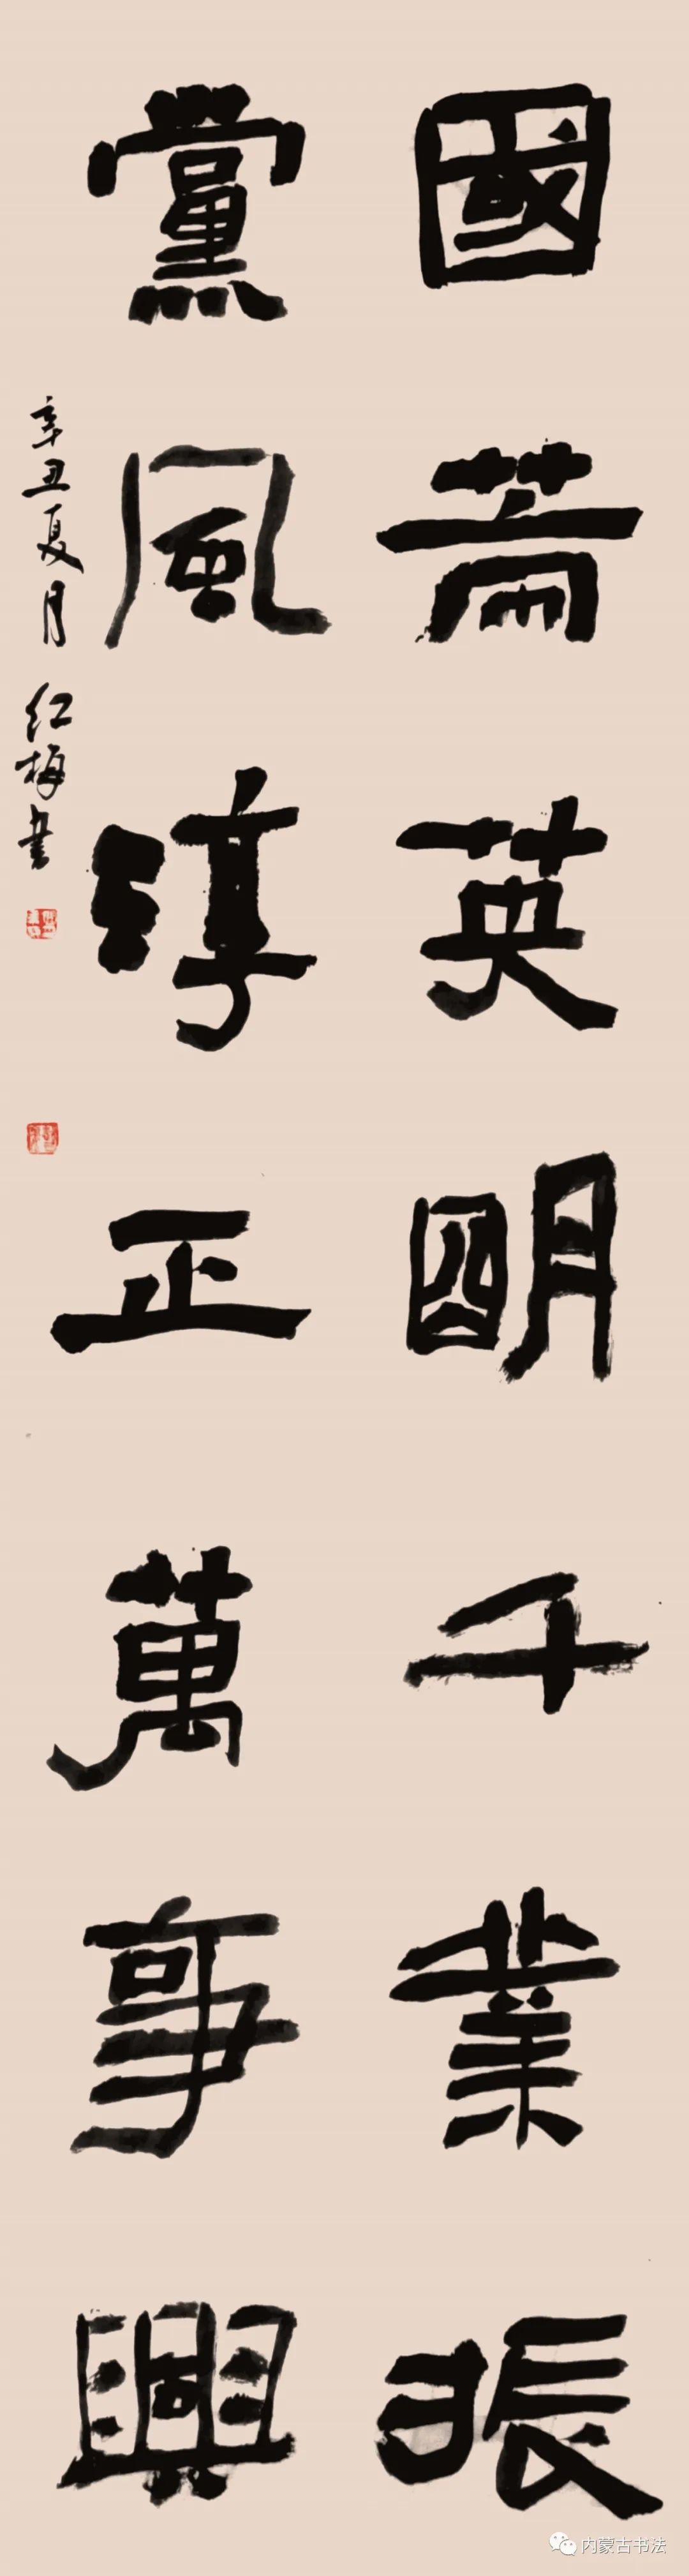 國耑英明千業振
黨風淳正萬事興
辛丑夏月 红梅书
内蒙古书法